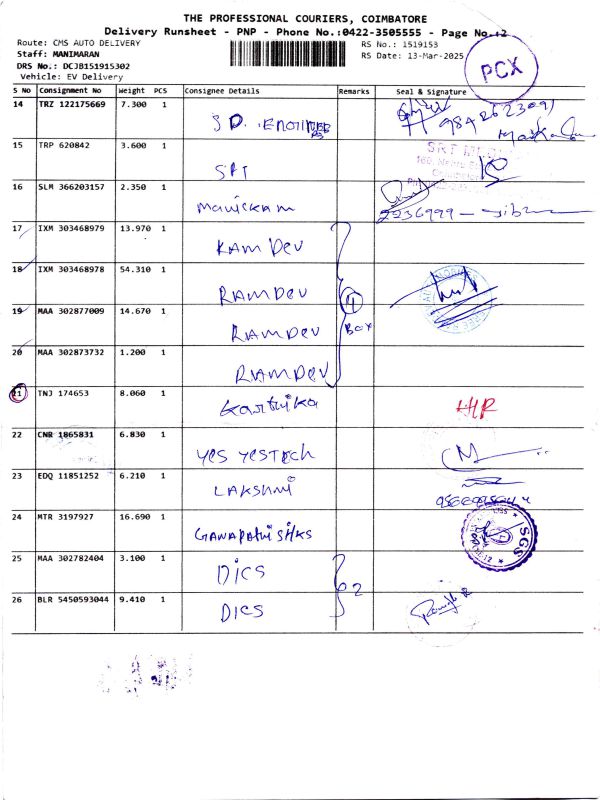 THE PROFESSIONAL COURIERS, COIMBATORE
Delivery Runsheet - PNP - Phone No.:0422-3505555 - Page No.:2
Route: CMS AUTO DELIVERY
RS No.: 1519153
Staff: MANIMARAN
RS Date: 13-Mar-2025
DRS No.: DCJB151915302
Vehicle: EV Delivery
PCX
S No Consignment No Weight PCS Consignee Details Remarks Seal & Signature
14 TRZ 122175669 7.300 1 S D. ENGINEERS 9842623091
15 TRP 620842 3.600 1 SRT SRT
16 SLM 366203157 2.350 1 Manickam 2236999
17 IXM 303468979 13.970 1 RAM DEV
18 IXM 303468978 54.310 1 RAMDEV 4
19 MAA 302877009 14.670 1 RAMDEV BOX
20 MAA 302873732 1.200 1 RAMDEV
21 TNJ 174653 8.060 1 Karthika HR
22 CNR 1865831 6.830 1 YES YESTECH
23 EDQ 11851252 6.210 1 LAKSHMI
24 MTR 3197927 16.690 1 GANAPATHI SILKS SGS
25 MAA 302782404 3.100 1 DICS 02
26 BLR 5450593044 9.410 1 DICS